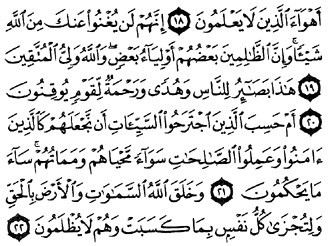 أَهْوَآءَ ٱلَّذِينَ لَا يَعْلَمُونَ ١٨ إِنَّهُمْ لَن يُغْنُوا۟ عَنكَ مِنَ ٱللَّهِ
شَيْـًٔا ۚ وَإِنَّ ٱلظَّـٰلِمِينَ بَعْضُهُمْ أَوْلِيَآءُ بَعْضٍ ۖ وَٱللَّهُ وَلِىُّ ٱلْمُتَّقِينَ
١٩ هَـٰذَا بَصَـٰٓئِرُ لِلنَّاسِ وَهُدًى وَرَحْمَةٌ لِّقَوْمٍ يُوقِنُونَ
٢٠ أَمْ حَسِبَ ٱلَّذِينَ ٱجْتَرَحُوا۟ ٱلسَّيِّـَٔاتِ أَن نَّجْعَلَهُمْ كَٱلَّذِينَ
ءَامَنُوا۟ وَعَمِلُوا۟ ٱلصَّـٰلِحَـٰتِ سَوَآءً مَّحْيَاهُمْ وَمَمَاتُهُمْ ۚ سَآءَ
مَا يَحْكُمُونَ ٢١ وَخَلَقَ ٱللَّهُ ٱلسَّمَـٰوَٰتِ وَٱلْأَرْضَ بِٱلْحَقِّ
وَلِتُجْزَىٰ كُلُّ نَفْسٍۭ بِمَا كَسَبَتْ وَهُمْ لَا يُظْلَمُونَ ٢٢